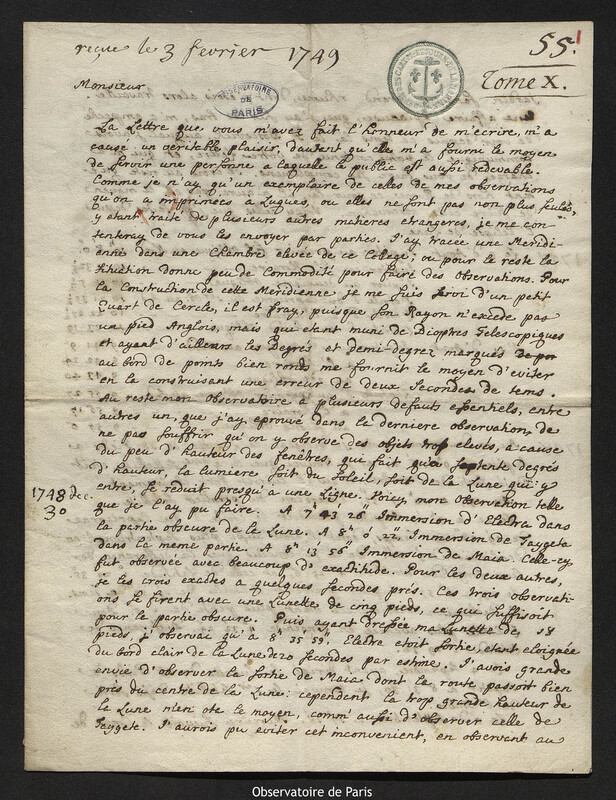 reçue le 3 fevrier 1749
55.
1
Tome X.
OBSERVATOIRE DE PARIS
Monsieur
La Lettre que vous m'avez fait l'honneur de m'ecrire, m'a
causé un veritable plaisir, dautent qu'elle m'a fourni le moyen
de servir une personne a laquelle le public est aussi redevable.
Comme je n'ay qu'un exemplaire de celles de mes observations
qu'on a imprimées à Luques, ou elles ne sont pas non plus seules,
y etant traité de plusieurs autres matieres etrangeres, je me con-
tenteray de vous les envoyer par parties. J'ay tracée une Meridi-
enne dans une Chambre elevée de ce College; ou pour le reste la
situation donne peu de Commodité pour faire des observations. Pour
la Construction de cette Meridienne je me suis servi d'un petit
Quart de Cercle, il est fray, puisque son Rayon n'excede pas
un pied Anglois, mais qui etant muni de Dioptres Telescopiques
et ayant d'ailleurs les Degrés et demi-degrez marqués
au bord de points bien ronds me fournit le moyen d'eviter
en la construisant une erreur de deux secondes de tems.
Au reste mon observatoire à plusieurs defauts essentiels, entre
autres un, que j'ay eprouvé dans la derniere observation, de
ne pas souffrir qu'on y observe des objets trop elevés, à cause
du peu d'hauteur des fenêtres, qui fait qu'a septente degrés
d'hauteur, la lumiere soit du Soleil, soit de la Lune qui y
entre, se reduit presqu'a une Ligne. Voicy, mon observation telle
que je l'ay pu faire. A 7h 43' 26" Immersion d'Electra dans
1748 Dec.
30
la partie obscure de le Lune. A 8h 0' 22", Immersion de Taygeta
dans la meme partie. A 8h 13' 56" Immersion de Maia. Celle-cy
fut observée avec beaucoup d'exactitude. Pour les deux autres,
je les crois exactes a quelques secondes prés. Ces trois observati-
ons se firent avec une Lunette de cinq pieds, ce qui suffisoit
pour le partie obscure. Puis ayant dressée ma Lunette de 18
pieds, j'observai qu'à 8h 35' 59", Electra etoit sortie, etant eloignée
du bord clair de la Lune de 20 secondes par estime. J'avois grande
envie d'observer la sortie de Maia dont la route passoit bien
prés du centre de la Lune: cependant la trop grande hauteur de
la Lune m'en ote le moyen, comm' aussi d'observer celle de
Taygete. J'aurois pu eviter cet inconvenient, en observant au
Observatoire de Paris